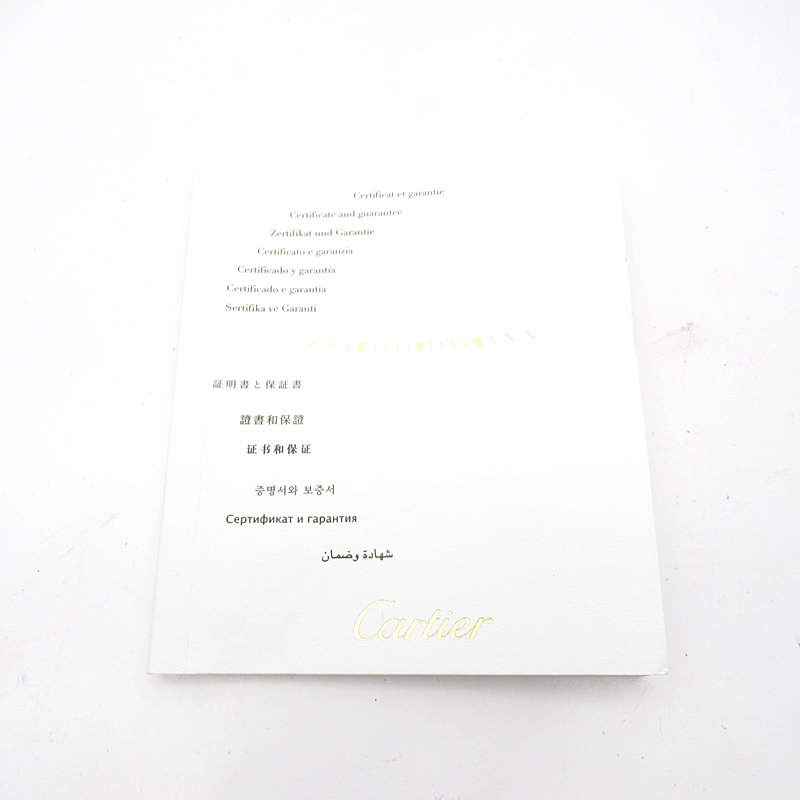 Certificat et garantie
Certificate and guarantee
Zertifikat und Garantie
Certificato e garanzia
Certificado y garantía
Certificado e garantia
Sertifika ve Garanti
証明書と保証書
證書和保證
证书和保证
증명서와 보증서
Сертификат и гарантия
شهادة وضمان
Cartier